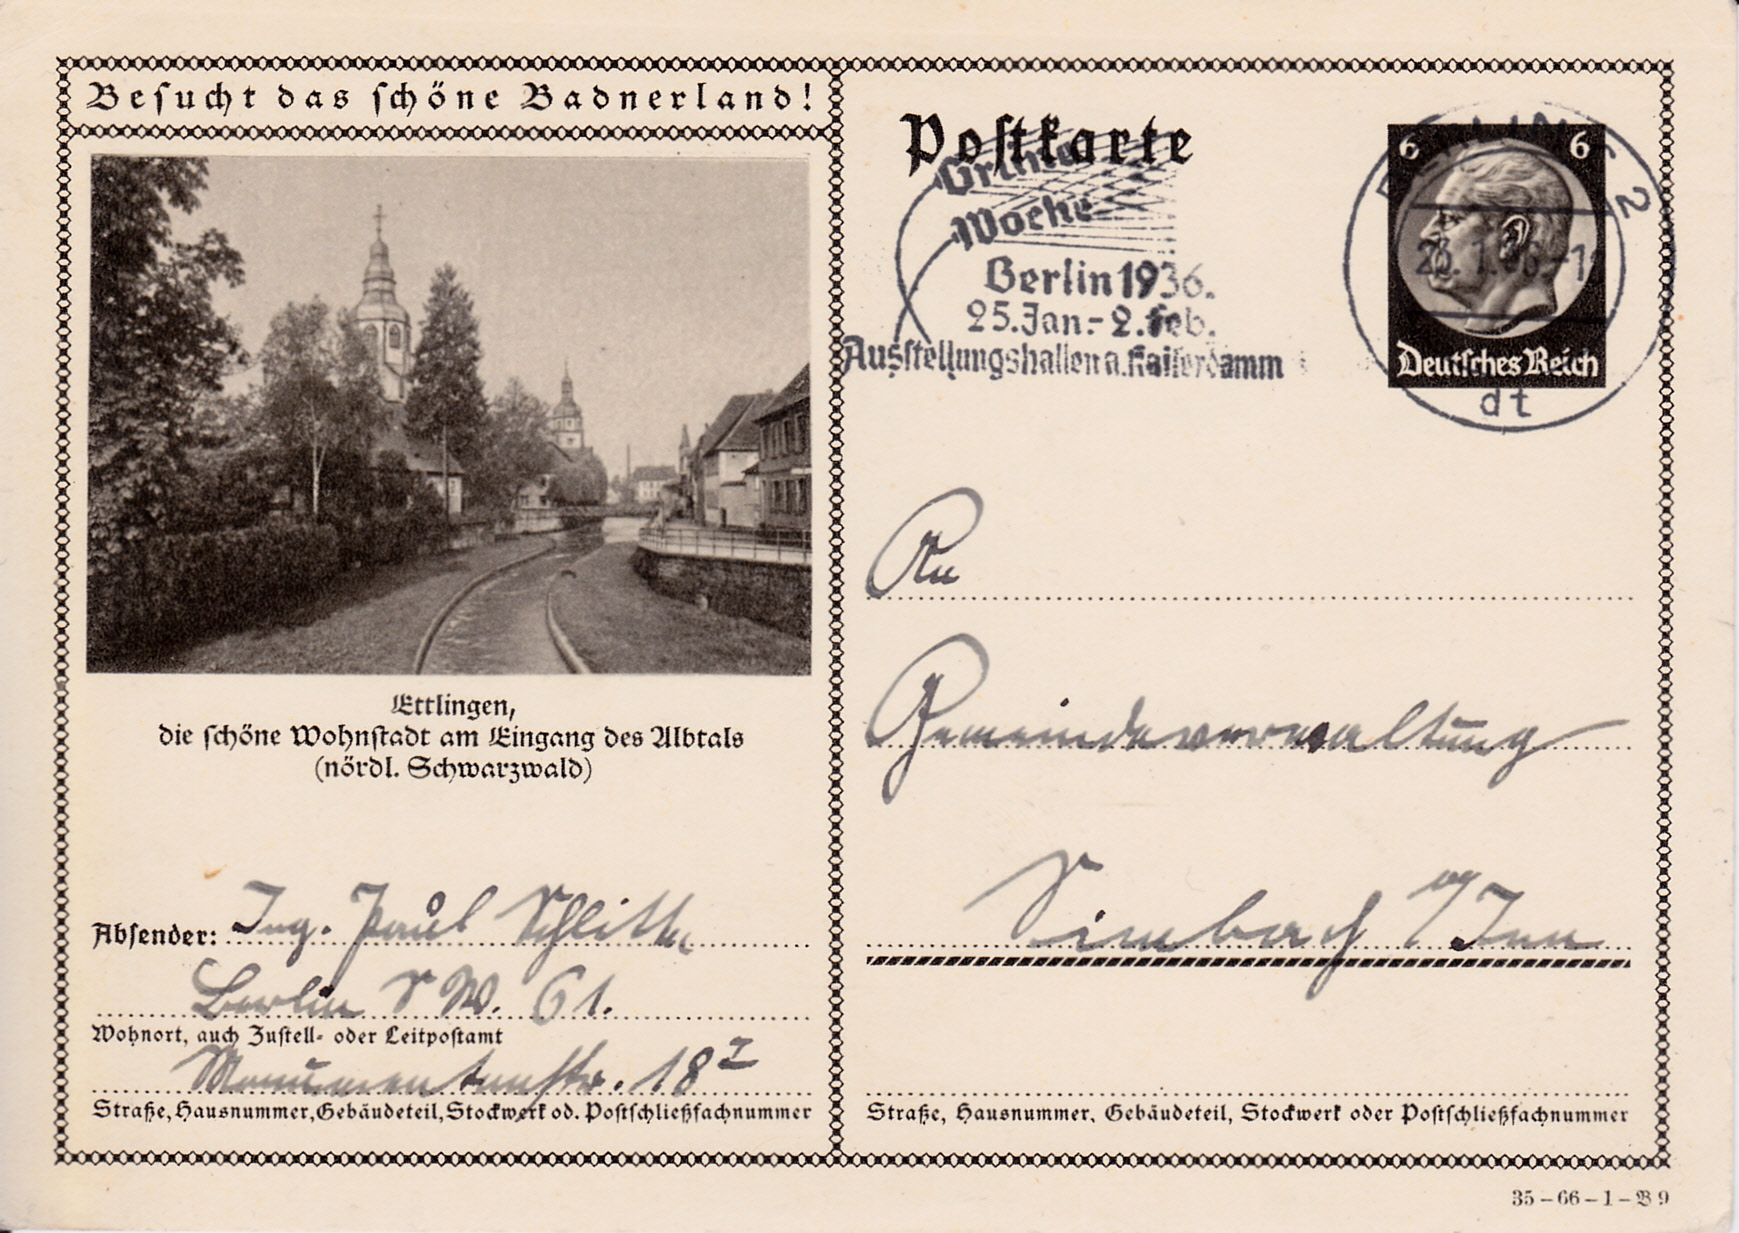 Besucht das schöne Badnerland!
Ettlingen,
die schöne Wohnstadt am Eingang des Albtals
(nördl. Schwarzwald)
Absender: Ing. Paul
Berlin SW. 61.
Wohnort, auch Zustell- oder Leitpostamt
Monumentenstr. 18 I
Straße, Hausnummer, Gebäudeteil, Stockwerk od. Postschließfachnummer
Postkarte
Grüne
Woche
Berlin 1936.
25. Jan. - 2. Feb.
Ausstellungshallen a. Kaiserdamm
6 6
BERLIN 2
Deutsches Reich
dt
An
Gemeindeverwaltung
Simbach a/Inn
Straße, Hausnummer, Gebäudeteil, Stockwerk oder Postschließfachnummer
35-66-1-B 9